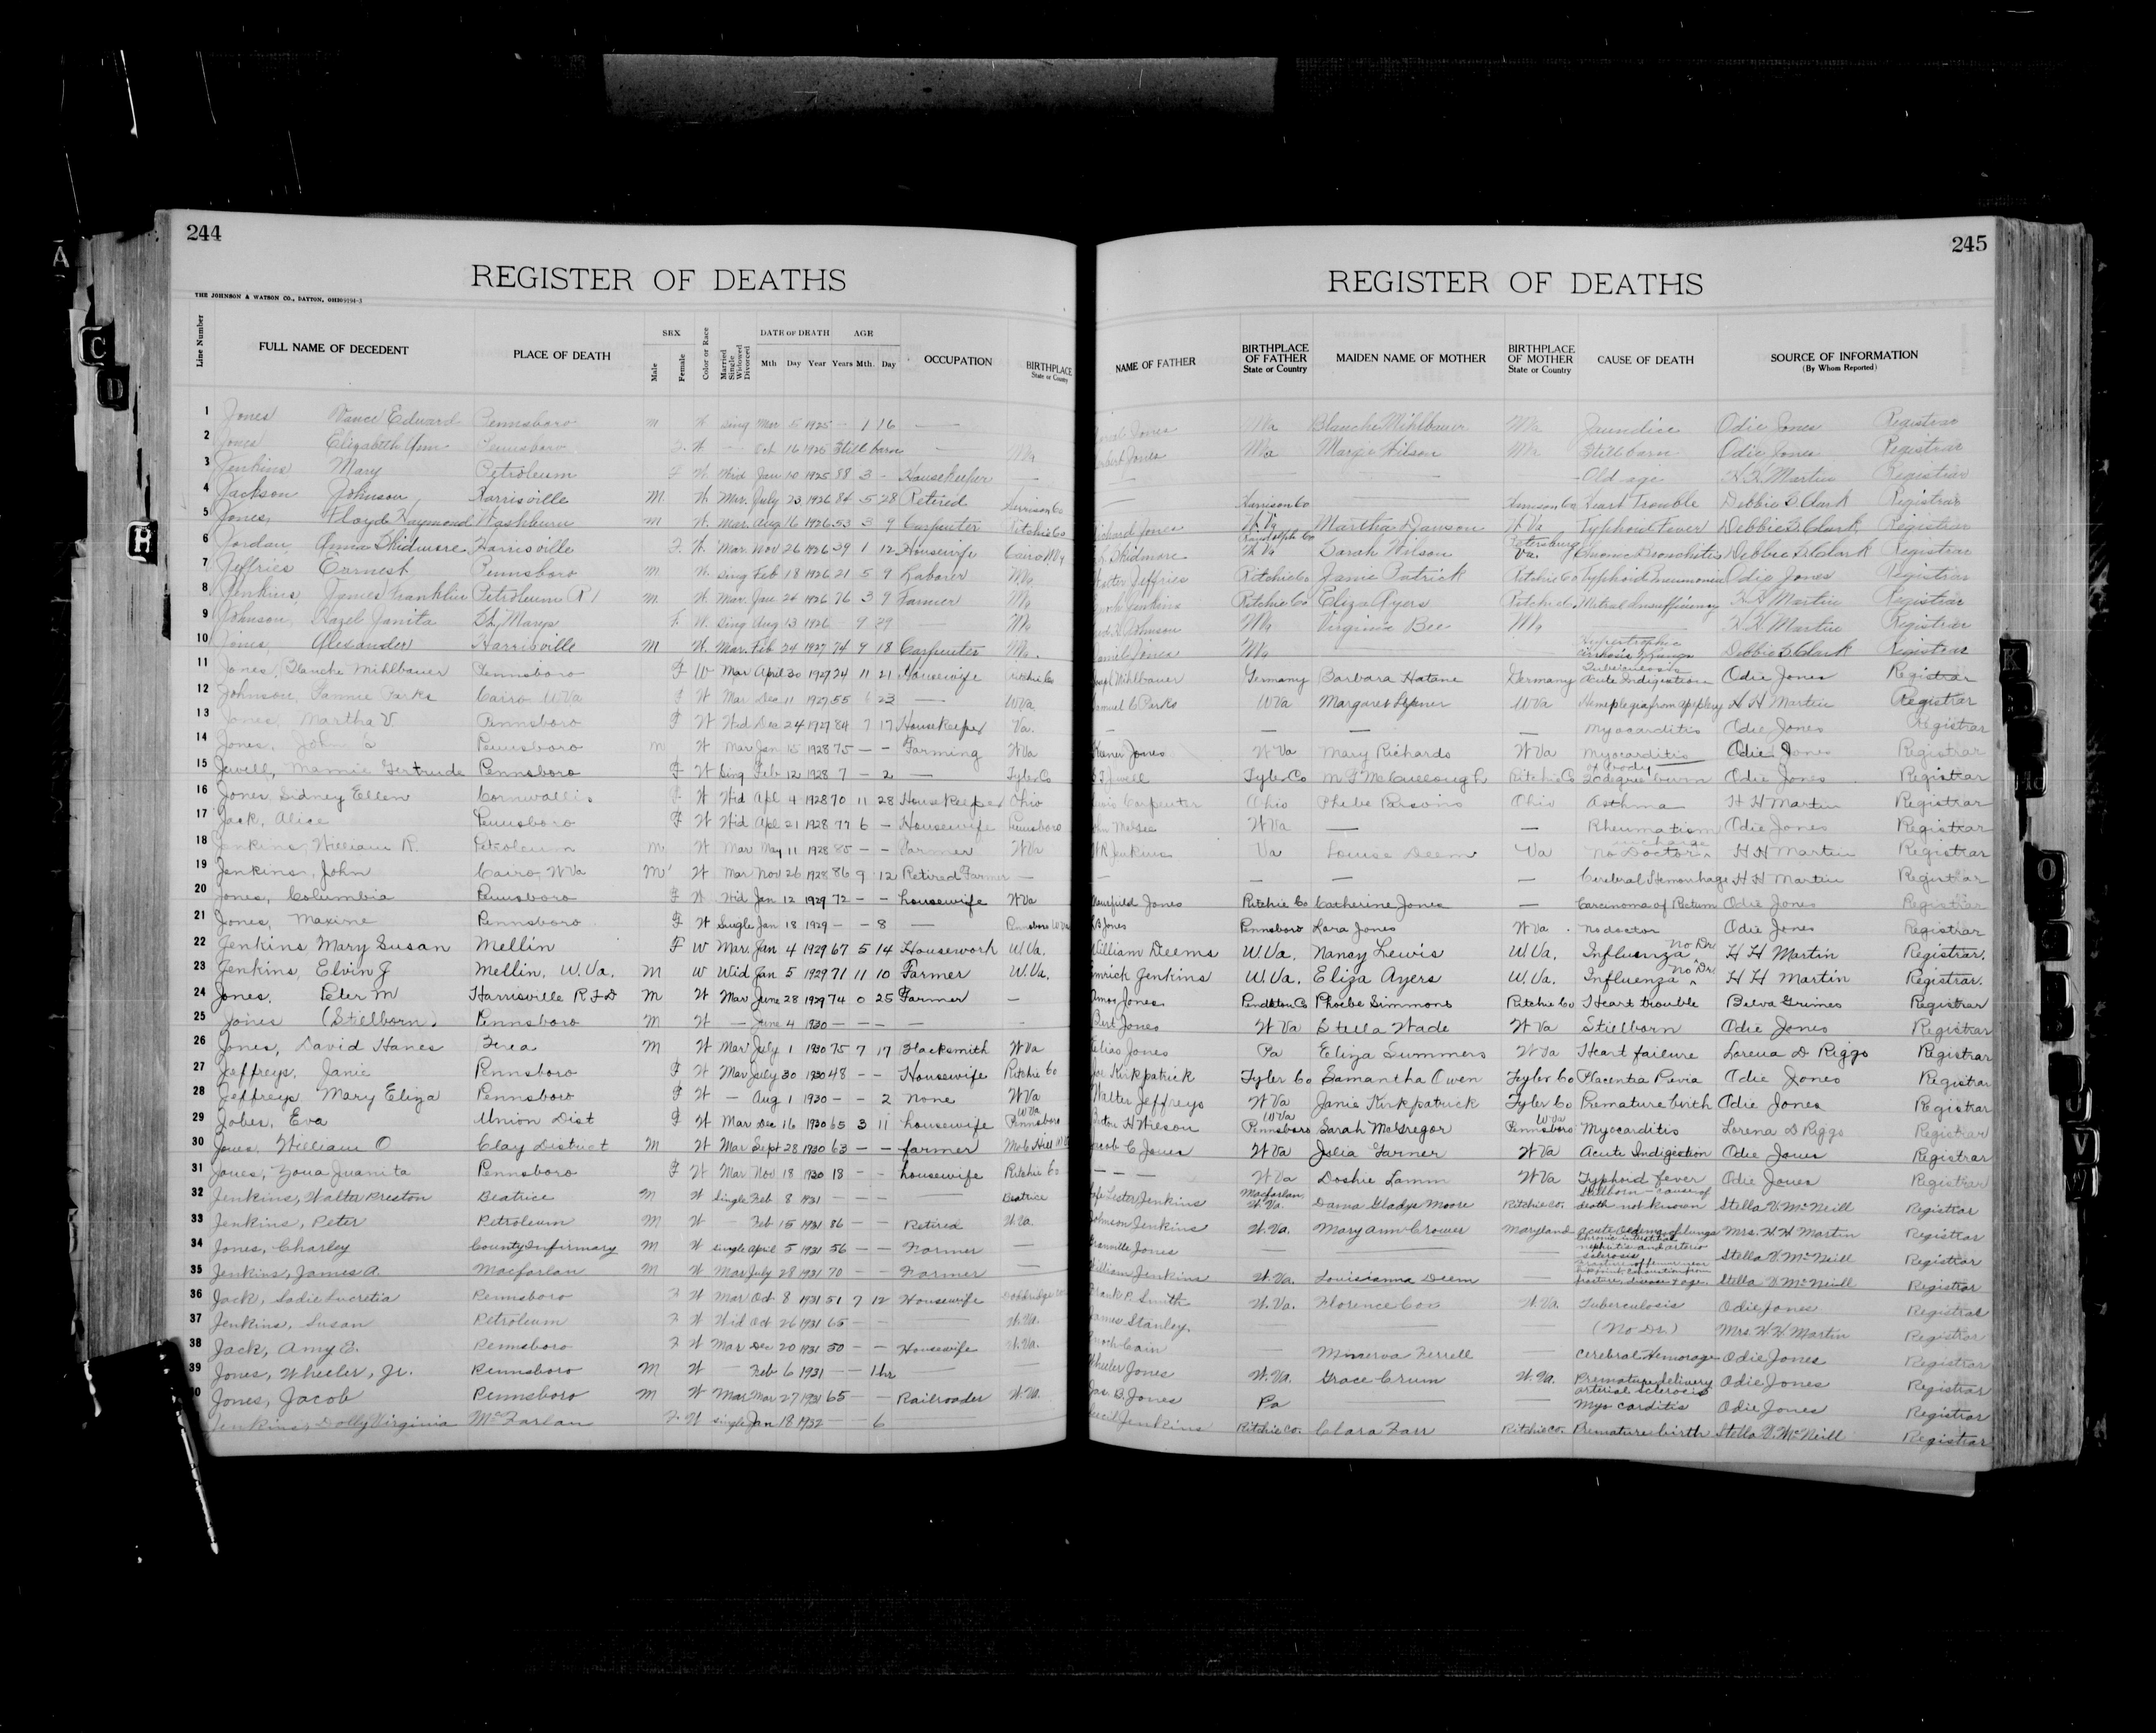 244
REGISTER OF DEATHS
THE JOHNSON & WATSON CO., DAYTON, OHIO
Line Number FULL NAME OF DECEDENT PLACE OF DEATH SEX Male Female Color or Race Married Single Widowed Divorced DATE OF DEATH Mth Day Year AGE Years Mth. Day OCCUPATION BIRTHPLACE State or County
1 Jones Vance Edward Pennsboro M W Sing Mar 5 1925 — 1 16 —
2 Jones Elizabeth Ann Pennsboro F. W. — Oct 16 1925 Still born — WVa
3 Jenkins Mary Petroleum F W. Wid Jan 10 1925 88 3 - Housekeeper —
4 Jackson Johnson Harrisville M. W. Mar. July 23 1926 84 5 28 Retired Harrison Co
5 Jones, Floyde Raymond Washburn M W. Mar. Aug 16 1926 53 3 9 Carpenter Ritchie Co
6 Jordan, Anna Skidmore Harrisville F. W. Mar. Nov 26 1926 39 1 12 Housewife Cairo WVa
7 Jeffries Earnest Pennsboro M W. Sing Feb 18 1926 21 5 9 Laborer WVa
8 Jenkins, James Franklin Petroleum R1 M. W. Mar. Jan 24 1926 76 3 9 Farmer WVa
9 Johnson, Hazel Janita St. Marys F. W. Sing Aug 13 1926 - 9 29 — WVa
10 Jones, Alexander Harrisville M W. Mar. Feb 24 1927 74 9 18 Carpenter Va.
11 Jones, Blanche Mihlbauer Pennsboro F W Mar April 30 1927 24 11 21 Housewife Ritchie Co
12 Johnson, Fannie Parks Cairo W Va F W Mar Dec 11 1927 55 6 23 — W Va
13 Jones, Martha V. Pennsboro F W Wid Dec 24 1927 84 7 17 Housekeeper Va.
14 Jones, John S Pennsboro M W Mar Jan 15 1928 75 — — Farming W Va
15 Jewell, Mamie Gertrude Pennsboro F W Sing Feb 12 1928 7 — 2 — Tyler Co
16 Jones Sidney Ellen Cornwallis F W Wid Apl 4 1928 70 11 28 Housekeeper Ohio
17 Jack, Alice Pennsboro F W Wid Apl 21 1928 77 6 — Housewife Pennsboro
18 Jenkins, William R. Petroleum M W Mar May 11 1928 85 — — Farmer W Va
19 Jenkins, John Cairo, W Va M W Mar Nov 26 1928 86 9 12 Retired Farmer —
20 Jones, Columbia Pennsboro F W Wid Jan 12 1929 72 — — housewife W Va
21 Jones, Maxine Pennsboro F W Single Jan 18 1929 — — 8 — Pennsboro W Va
22 Jenkins Mary Susan Mellin F W Mar. Jan 4 1929 67 5 14 Housework W. Va.
23 Jenkins, Elvin J Mellin, W. Va. M W Wid Jan 5 1929 71 11 10 Farmer W. Va.
24 Jones, Peter M Harrisville R F D M W Mar June 28 1929 74 0 25 Farmer —
25 Jones (Stillborn) Pennsboro M W — June 4 1930 — — — — -
26 Jones, David Hanes Berea M W Mar July 1 1930 75 7 17 Blacksmith W Va
27 Jeffreys, Janie Pennsboro F W Mar July 30 1930 48 — — Housewife Ritchie Co
28 Jeffreys Mary Eliza Pennsboro F W — Aug 1 1930 — — 2 None W Va
29 Jobes, Eva Union Dist F W Mar Dec 16 1930 65 3 11 housewife Pennsboro W Va
30 Jones, William O Clay District M W Mar Sept 28 1930 63 — — farmer Mole Hill W Va
31 Jones, Zona Juanita Pennsboro F W Mar Nov 18 1930 18 — — housewife Ritchie Co
32 Jenkins, Walter Preston Beatrice M W Single Feb 8 1931 — — — — Beatrice
33 Jenkins, Peter Petroleum M W — Feb 15 1931 86 — — Retired W. Va.
34 Jones, Charley County Infirmary M W single April 5 1931 56 — — Farmer —
35 Jenkins, James A. Macfarlan M W Mar July 28 1931 70 — — Farmer —
36 Jack, Sadie Lucretia Pennsboro F W Mar Oct. 8 1931 51 7 12 Housewife Doddridge Co.
37 Jenkins, Susan Petroleum F W Wid Oct 26 1931 65 — — — W. Va.
38 Jack, Amy E. Pennsboro F W Mar Dec 20 1931 50 — — Housewife W. Va.
39 Jones, Wheeler, Jr. Pennsboro M W — Feb 6 1931 — — 1 hr — —
40 Jones, Jacob Pennsboro M W Mar Mar 27 1931 65 — — Railroader W. Va.
Jenkins, Dolly Virginia McFarlan F. W single Jan 18 1932 — — 6
245
REGISTER OF DEATHS
NAME OF FATHER BIRTHPLACE OF FATHER State or Country MAIDEN NAME OF MOTHER BIRTHPLACE OF MOTHER State or Country CAUSE OF DEATH SOURCE OF INFORMATION (By Whom Reported)
Jones WVa Blanche Mihlbauer WVa Jaundice Odie Jones Registrar
Jones WVa Margie Wilson WVa Still born Odie Jones Registrar
— — — — Old age H. H. Martin Registrar
Harrison Co — Harrison Co. Heart Trouble Debbie S. Clark Registrar
Richard Jones W Va Martha Dawson W Va Typhoid Fever Debbie S. Clark Registrar
Skidmore Randolph Co W Va Sarah Wilson Petersburg Va. Chronic Bronchitis Debbie S. Clark Registrar
Walter Jeffries Ritchie Co Janie Patrick Ritchie Co Typhoid Pneumonia Odie Jones Registrar
Jenkins Ritchie Co Eliza Ayers Ritchie Co. Mitral Insufficiency H. H. Martin Registrar
Johnson WVa Virginia Bee WVa — H. H. Martin Registrar
Daniel Jones WVa — — Hypertrophic cirrhosis of Lungs Debbie S. Clark Registrar
Joseph Mihlbauer Germany Barbara Hatane Germany Tuberculosis Acute Indigestion Odie Jones Registrar
Samuel C Parks W Va Margaret W Va Hemiplegia from apoplexy H H Martin Registrar
— — — — Myocarditis Odie Jones Registrar
Jones W Va Mary Richards W Va Myocarditis Odie Jones Registrar
Jewell Tyler Co M F McCullough Ritchie Co 2nd degree burn of body Odie Jones Registrar
Carpenter Ohio Phebe Parsons Ohio Asthma H H Martin Registrar
John W Va — — Rheumatism Odie Jones Registrar
W R Jenkins Va Louise Deem Va No Doctor in charge H H Martin Registrar
— — — — Cerebral Hemorrhage H H Martin Registrar
Jones Ritchie Co Catherine Jones — Carcinoma of Rectum Odie Jones Registrar
Jones Pennsboro Lora Jones W Va . No doctor Odie Jones Registrar
William Deems W. Va. Nancy Lewis W. Va. Influenza No Dr. H H Martin Registrar.
Jenkins W. Va. Eliza Ayers W. Va. Influenza No Dr. H H Martin Registrar.
Amos Jones Pendleton Co Phoebe Simmons Ritchie Co Heart trouble Belva Grimes Registrar
Bert Jones W Va Stella Wade W Va Stillborn Odie Jones Registrar
Elias Jones Pa Eliza Summers W Va Heart failure Lorena D Riggs Registrar
Joe Kirkpatrick Tyler Co Samantha Owen Tyler Co Placentia Previa Odie Jones Registrar
Walter Jeffreys W Va Janie Kirkpatrick Tyler Co Premature birth Odie Jones Registrar
H Wilson Pennsboro W Va Sarah McGregor Pennsboro W Va Myocarditis Lorena D Riggs Registrar
Jacob C Jones W Va Julia Garner W Va Acute Indigestion Odie Jones Registrar
— — — W Va Doshie Lamm W Va Typhoid Fever Odie Jones Registrar
Lester Jenkins Macfarlan W. Va. Dama Gladys Moore Ritchie Co. Stillborn — cause of death not known Stella V. McNeill Registrar
Johnson Jenkins W. Va. Mary Ann Crower Maryland acute oedema of lungs Mrs. H. H. Martin Registrar
Granville Jones — — — Chronic interstitial nephritis and arterio sclerosis Stella V. McNeill Registrar
William Jenkins W. Va. Louisianna Deem — Fracture of femur near hip joint. Exhaustion from fracture, disease & age. Stella V. McNeill Registrar
Frank P. Smith W. Va. Florence Cox W. Va. Tuberculosis Odie Jones Registrar
James Stanley. — — — (No Dr.) Mrs. H. H. Martin Registrar
Enoch Cain — Minerva Ferrell — Cerebral Hemorage Odie Jones Registrar
Wheeler Jones W. Va. Grace Crum W. Va. Premature delivery Odie Jones Registrar
Jas. B. Jones Pa — — arterial sclerosis Myo carditis Odie Jones Registrar
Cecil Jenkins Ritchie Co. Clara Farr Ritchie Co. Premature birth Stella V. McNeill Registrar
A
C
D
H
K
O
V